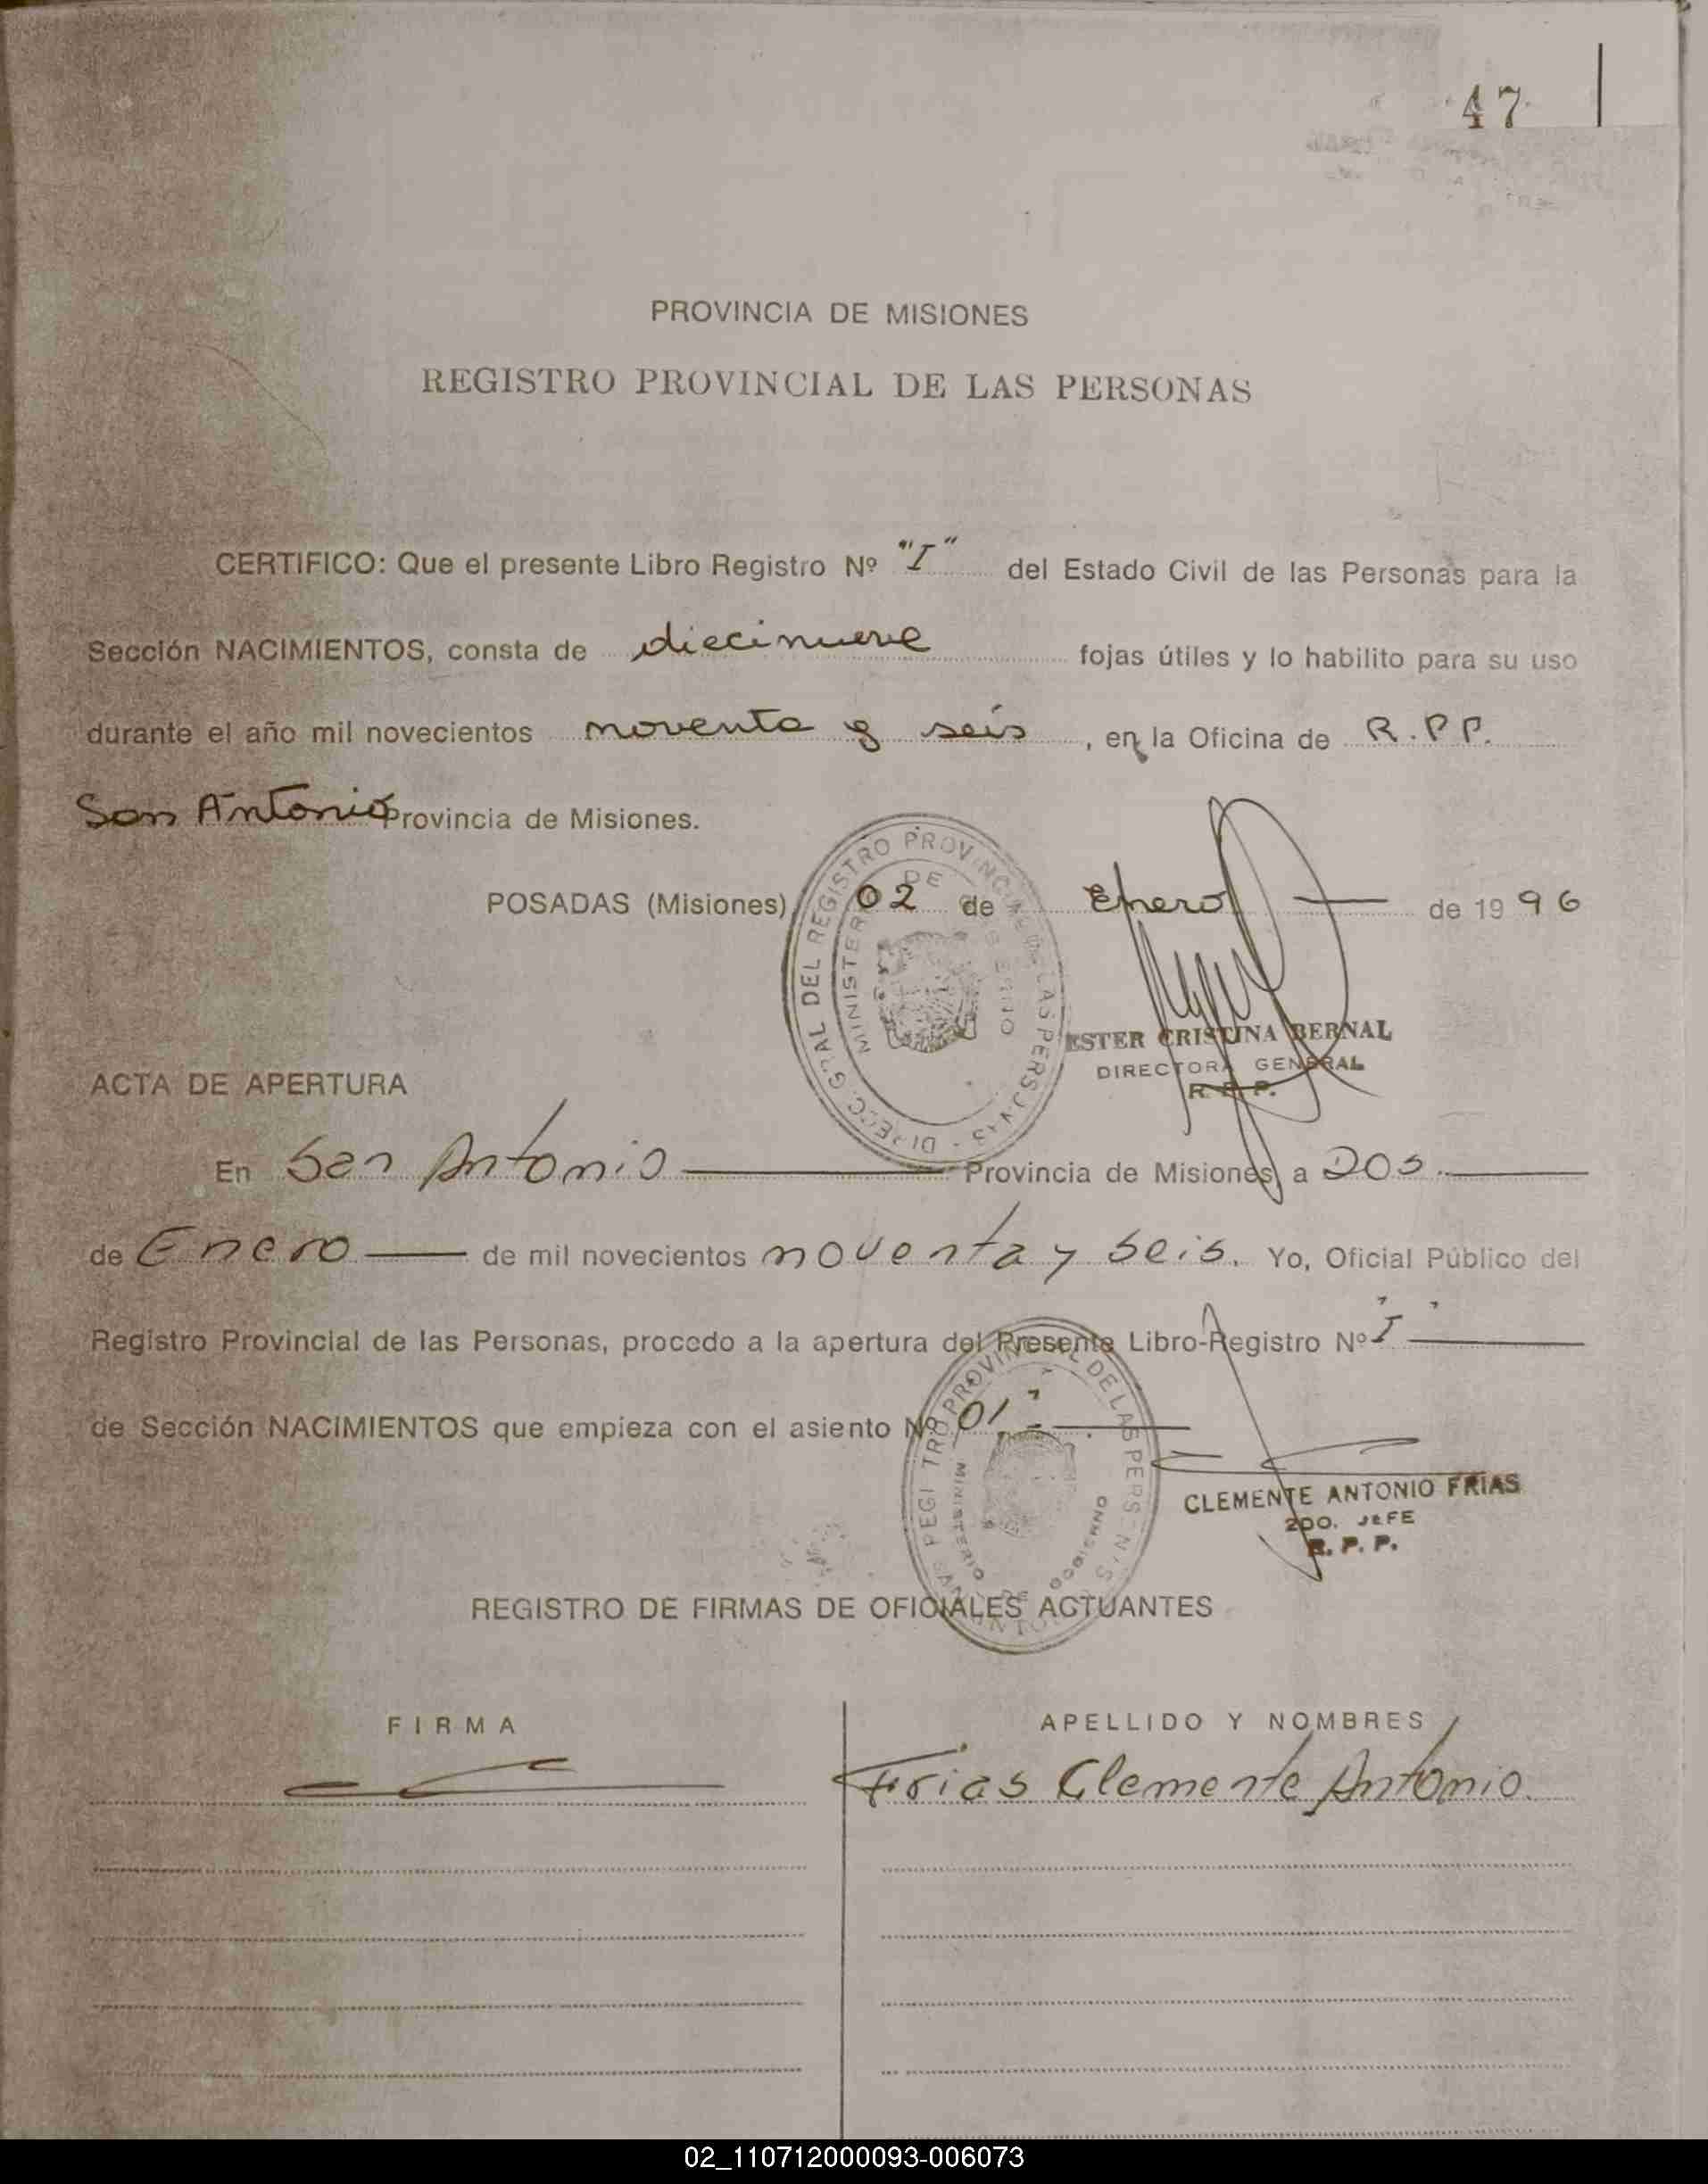 47
PROVINCIA DE MISIONES
REGISTRO PROVINCIAL DE LAS PERSONAS
CERTIFICO: Que el presente Libro Registro Nº "I" del Estado Civil de las Personas para la
Sección NACIMIENTOS, consta de diecinueve fojas útiles y lo habilito para su uso
durante el año mil novecientos noventa y seis, en la Oficina de R.P.P.
San Antonio Provincia de Misiones.
POSADAS (Misiones) 02 de Enero de 1996
DIRECC. GRAL DEL REGISTRO PROVINCIAL DE LAS PERSONAS
MINISTERIO DE GOBIERNO
ESTER CRISTINA BERNAL
DIRECTORA GENERAL
R. P. P.
ACTA DE APERTURA
En San Antonio Provincia de Misiones, a Dos
de Enero de mil novecientos noventa y seis. Yo, Oficial Público del
Registro Provincial de las Personas, procedo a la apertura del Presente Libro-Registro Nº "I"
de Sección NACIMIENTOS que empieza con el asiento Nº 01
REGISTRO PROVINCIAL DE LAS PERSONAS
MINISTERIO DE GOBIERNO
SAN ANTONIO
CLEMENTE ANTONIO FRIAS
2DO. JEFE
R. P. P.
REGISTRO DE FIRMAS DE OFICIALES ACTUANTES
FIRMA APELLIDO Y NOMBRES
Frias Clemente Antonio.
02_110712000093-006073